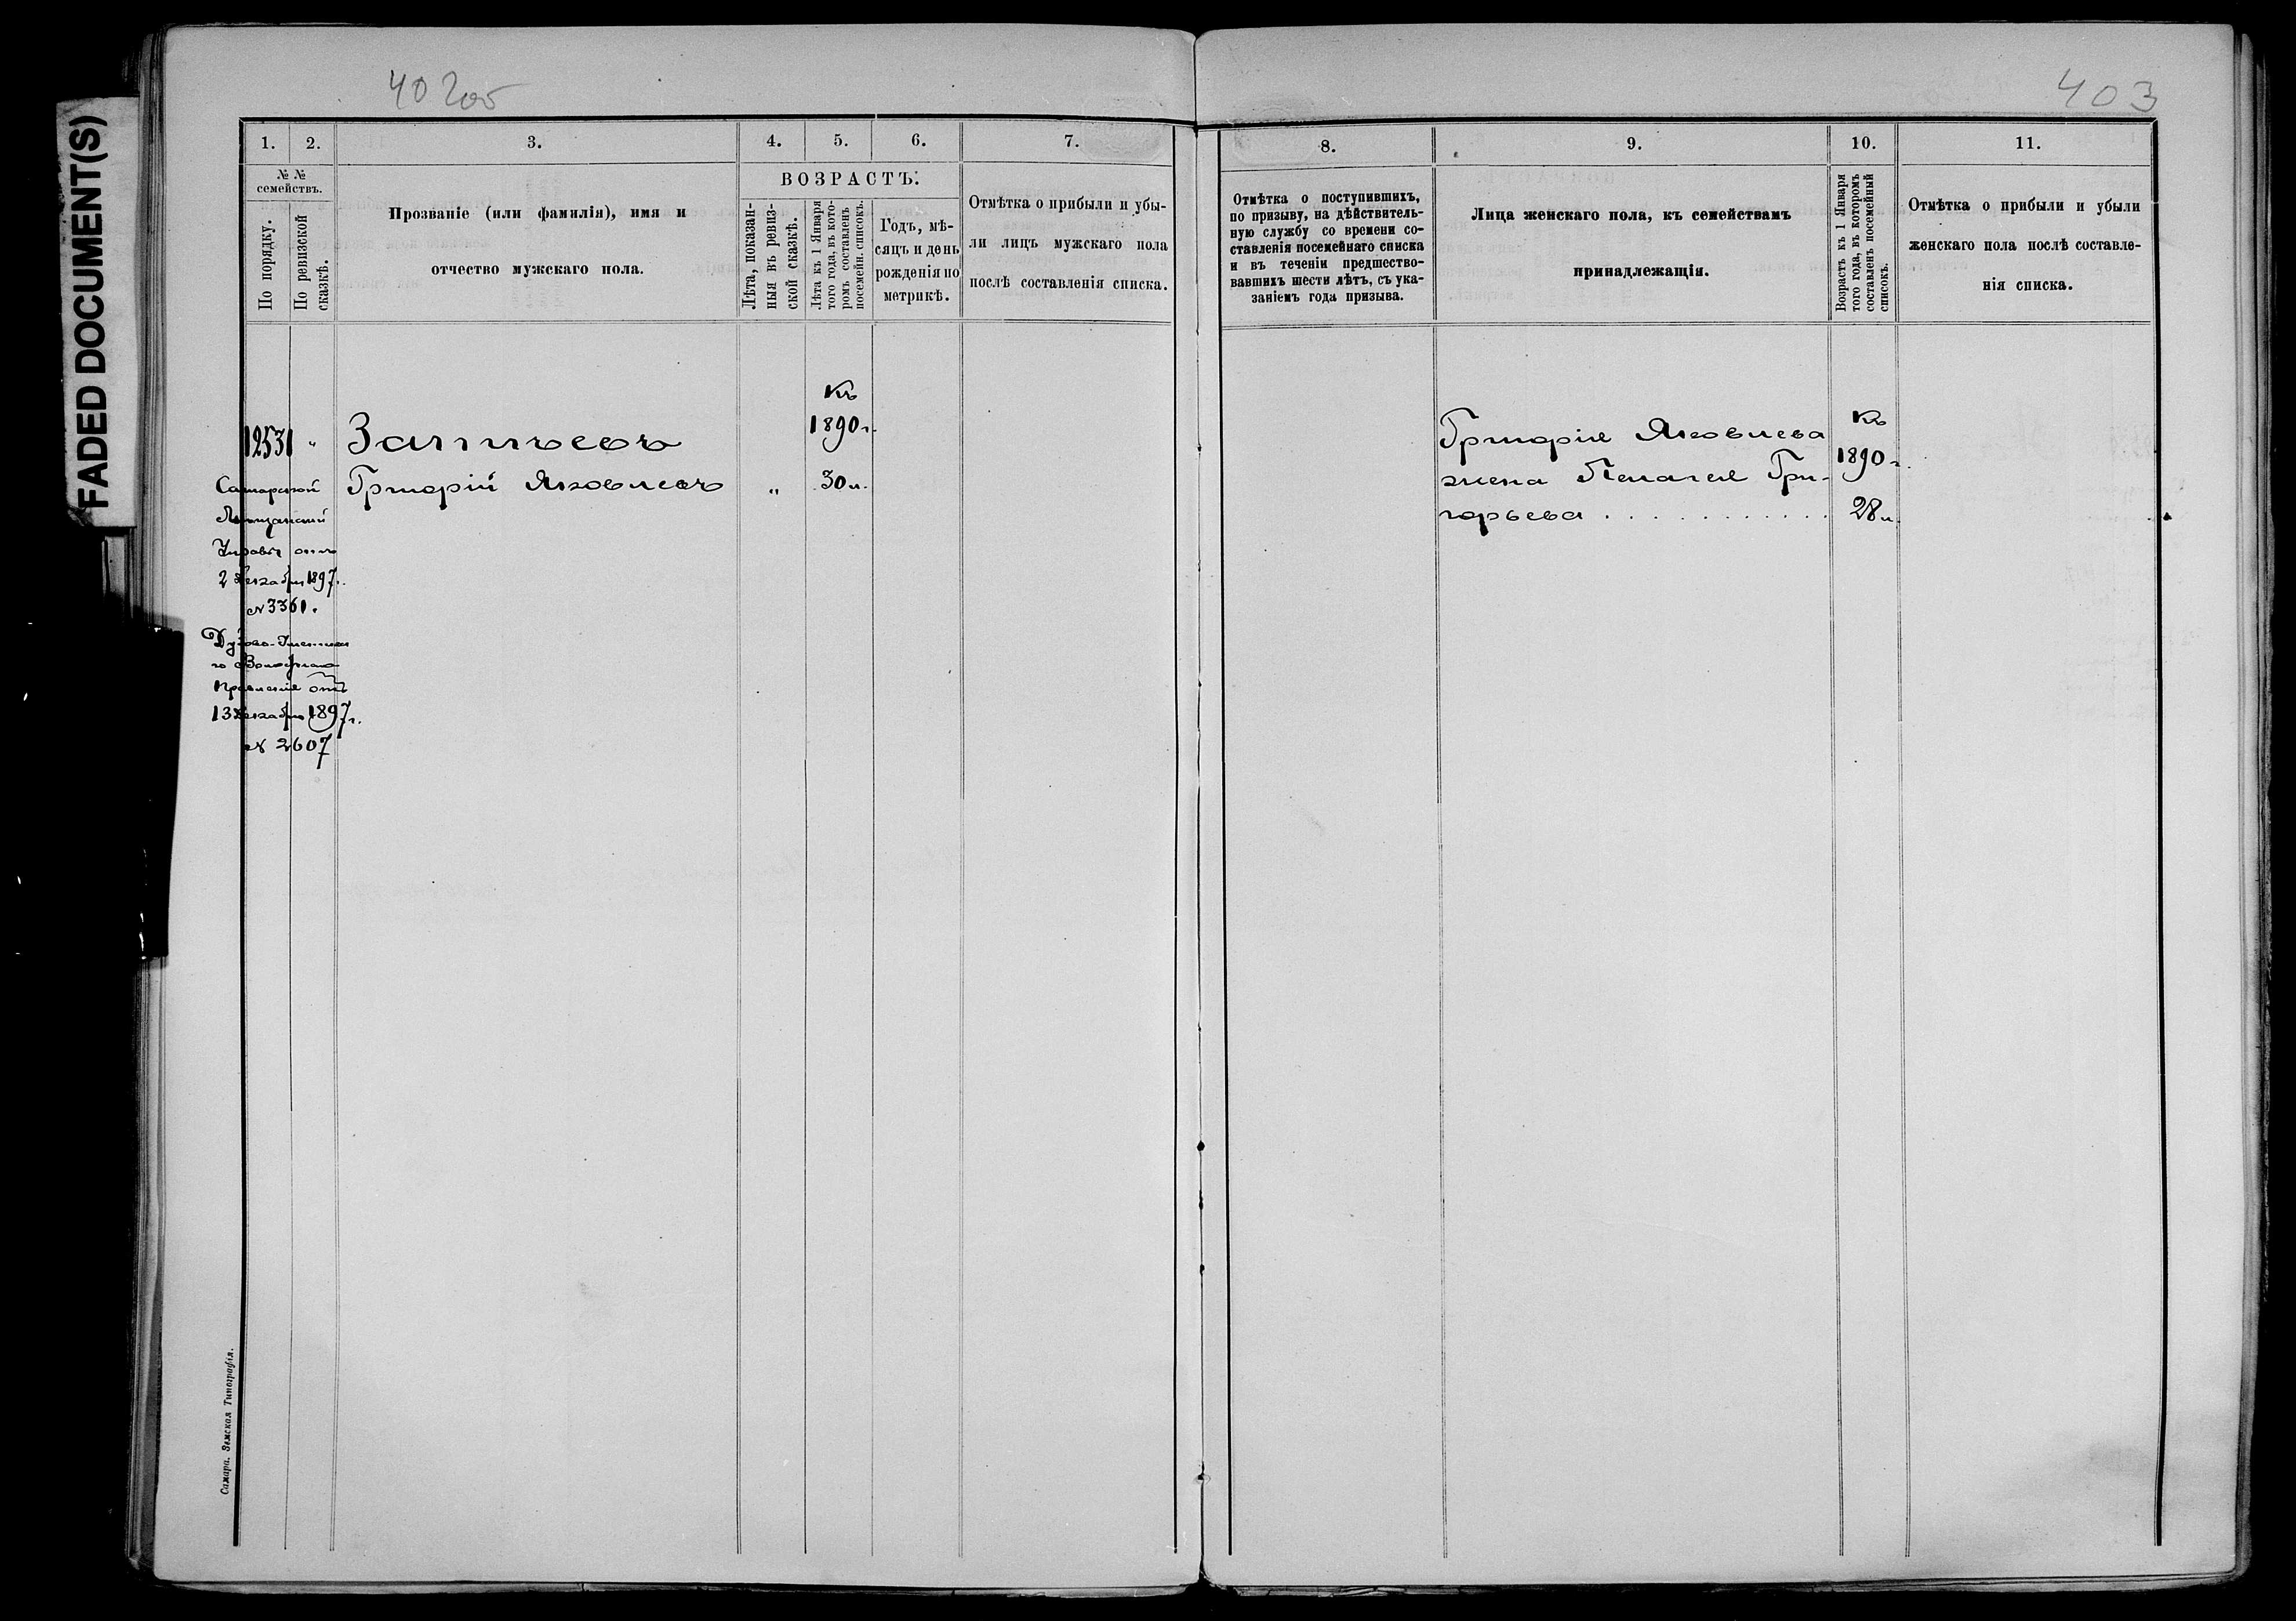 FADED DOCUMENT(S)
402об
403
1.
2.
3.
4.
5.
6.
7.
№ №
семействъ.
По порядку.
По ревизской
сказкѣ.
Прозваніе (или фамилія), имя и
отчество мужскаго пола.
ВОЗРАСТЪ.
Лѣта, показан-
ныя въ ревиз-
ской сказкѣ.
Лѣта къ 1 Января
того года, въ кото-
ромъ составленъ
посемейн. списокъ.
Годъ, мѣ-
сяцъ и день
рожденія по
метрикѣ.
Отмѣтка о прибыли и убы-
ли лицъ мужскаго пола
послѣ составленія списка.
8.
9.
10.
11.
Отмѣтка о поступившихъ,
по призыву, на дѣйствитель-
ную службу со времени со-
ставленія посемейнаго списка
и въ теченіи предшество-
вавшихъ шести лѣтъ, съ ука-
заніемъ года призыва.
Лица женскаго пола, къ семействамъ
принадлежащія.
Возрастъ къ 1 Января
того года, въ которомъ
составленъ посемейный
списокъ.
Отмѣтка о прибыли и убыли
женскаго пола послѣ составле-
нія списка.
Къ
1890 г.
12531 "
Григорій Яковлевъ " 30 л.
Самарской
Мѣщанской
Управы отъ
2 декабря 1897 г.
№ 3361.
Волостнаго
Правленія отъ
13 декабря 1897 г.
№ 2607
Григорія Яковлева
жена Пелагея Гри-
горьева . . . . . . . . . . .
Къ
1890 г.
28 л.
Самара. Земская Типографія.